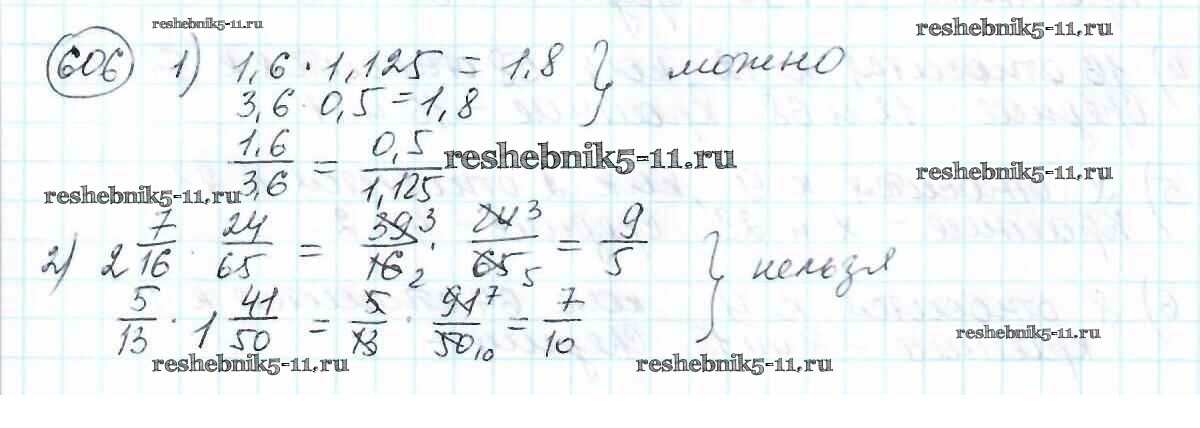 reshebnik5-11.ru
reshebnik5-11.ru
606 1) 1,6 · 1,125 = 1,8 } можно
3,6 · 0,5 = 1,8
1,6/3,6 = 0,5/1,125
reshebnik5-11.ru
reshebnik5-11.ru
reshebnik5-11.ru
2) 2 7/16 · 24/65 = 39 3/16 2 · 24 3/65 5 = 9/5 } нельзя
5/13 · 1 41/50 = 5/13 · 91 7/50 10 = 7/10
reshebnik5-11.ru
reshebnik5-11.ru
reshebnik5-11.ru